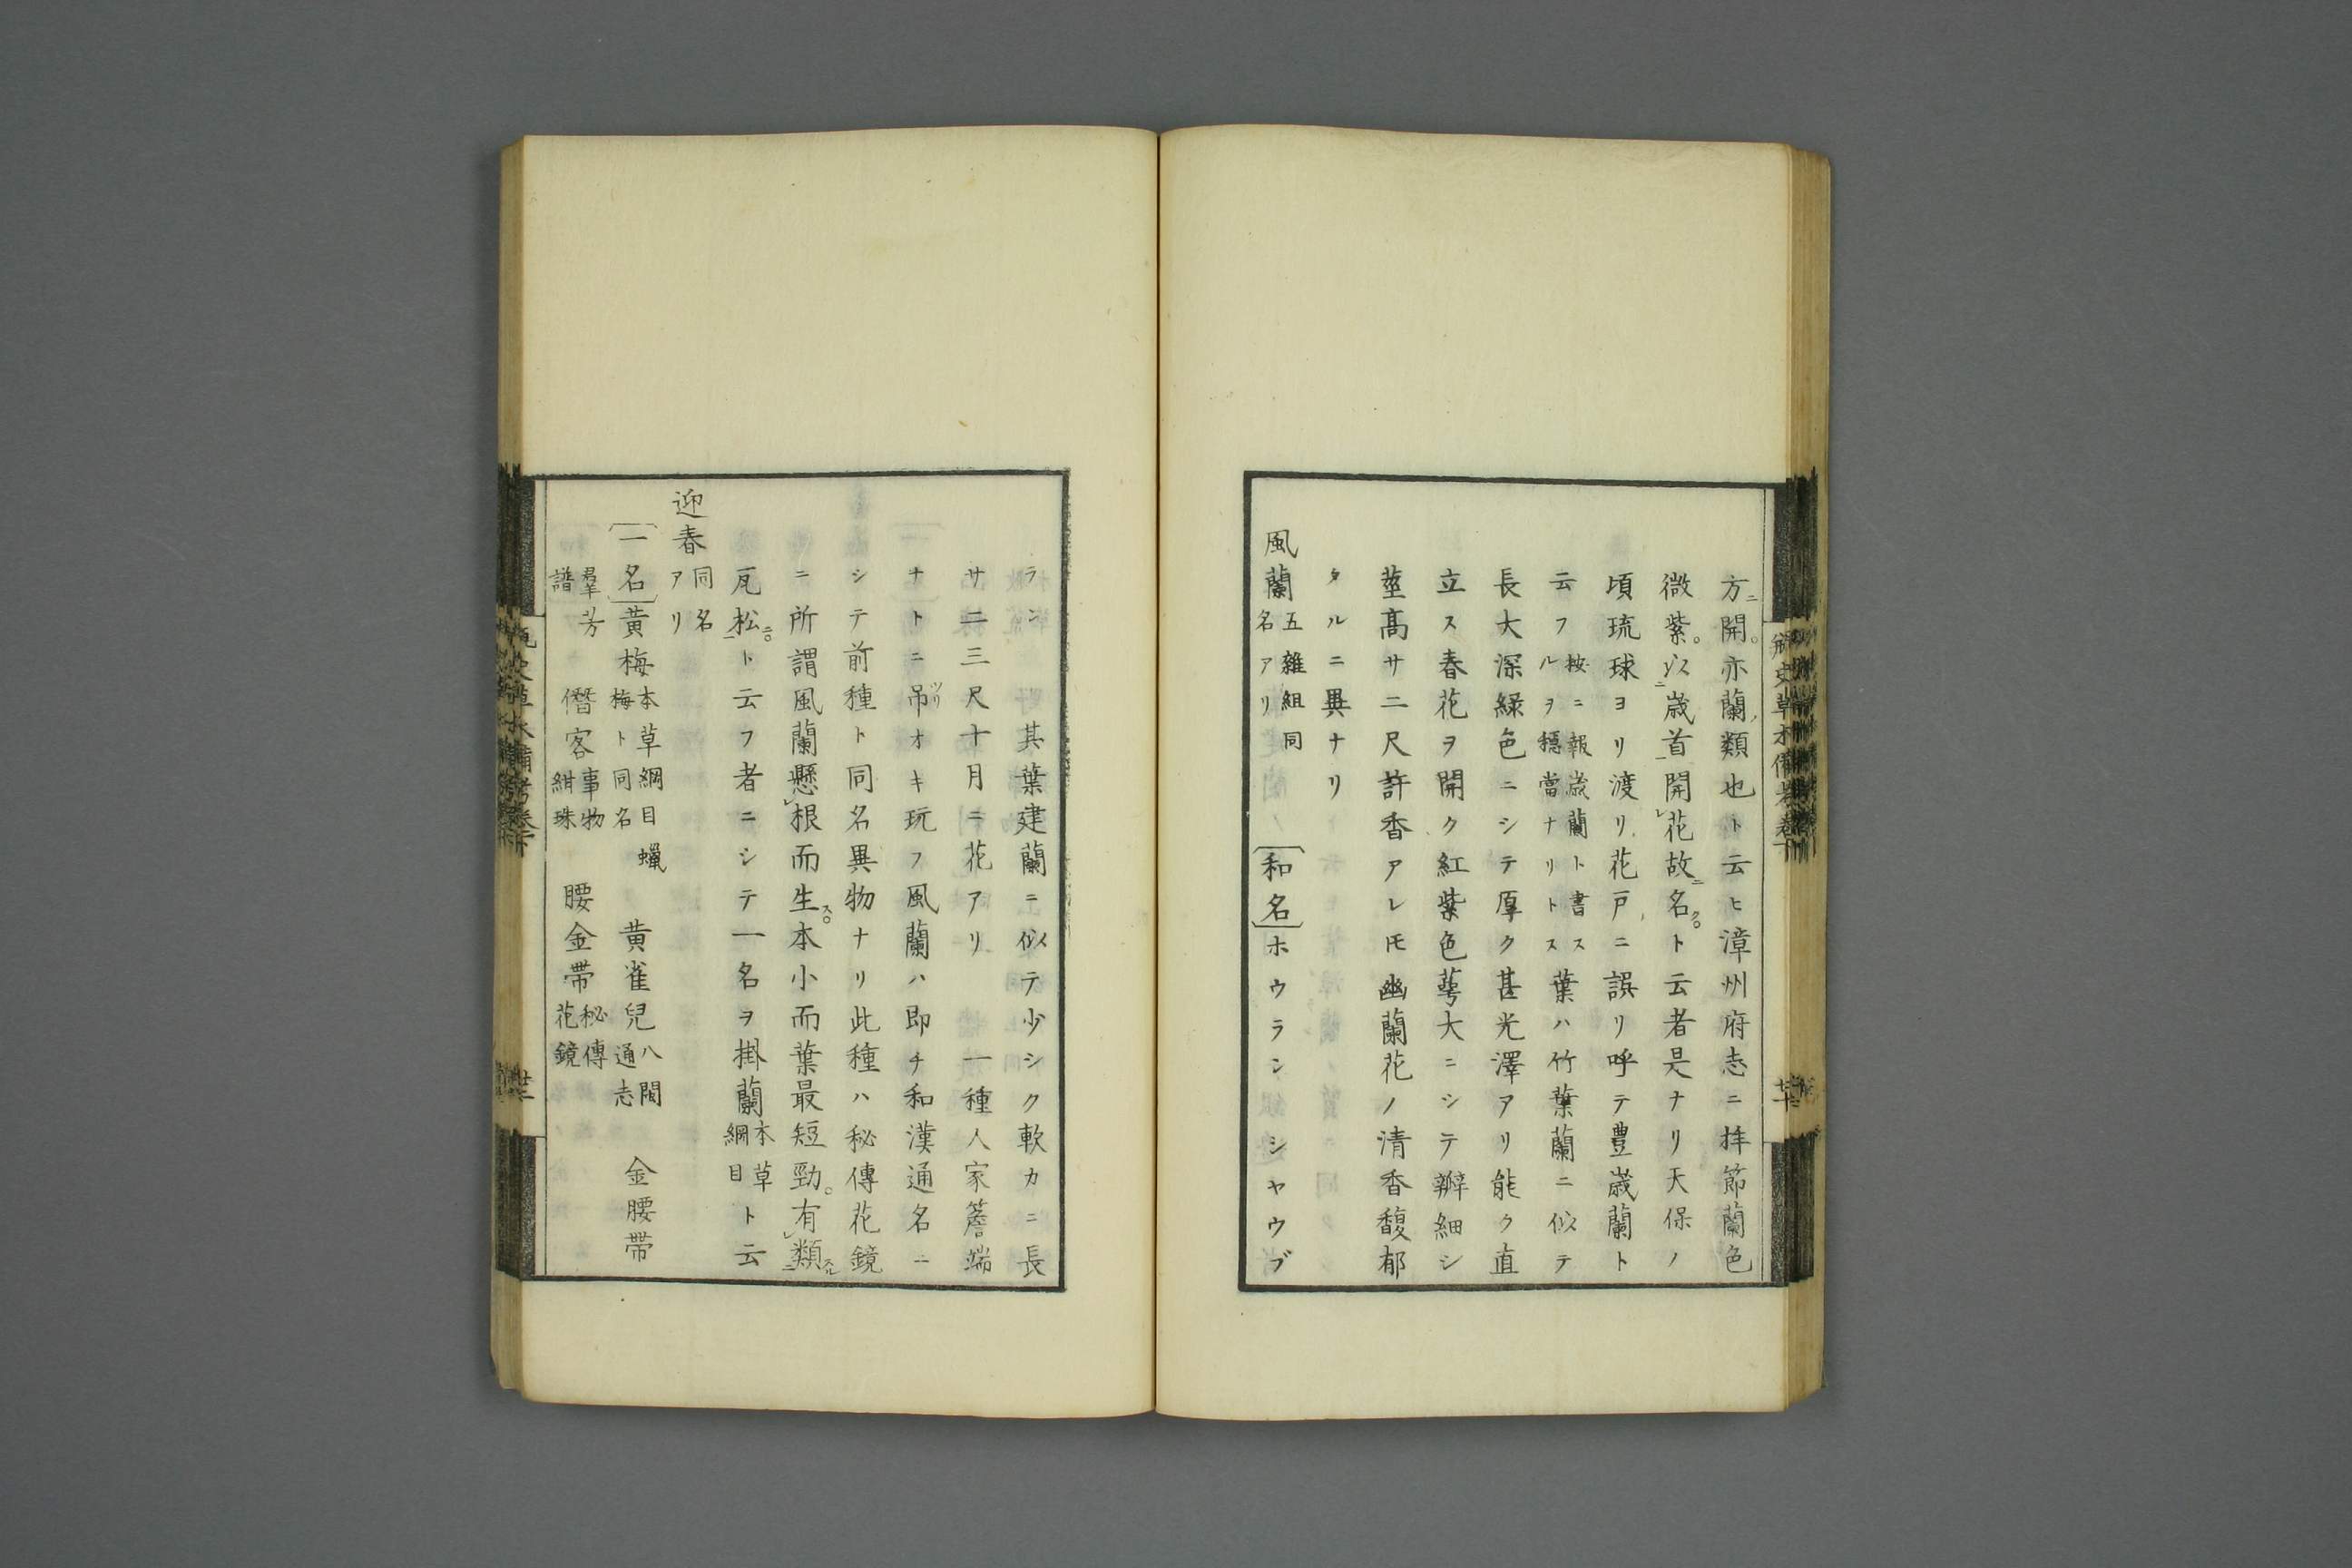 方ニ開。亦蘭ノ類也ト云ヒ漳州府志ニ拝節蘭色
微紫。以ス歳首開花故ニ名クトト云者是ナリ天保ノ
頃琉球ヨリ渡リ花戸ニ誤リ呼テ豊歳蘭ト
云フ 按ニ報歳蘭ト書ス
ルヲ穏當ナリトス 葉ハ竹葉蘭ニ似テ
長大深緑色ニシテ厚ク甚光澤アリ能ク直
立ス春花ヲ開ク紅紫色萼大ニシテ瓣細シ
莖高サ二尺許香アレ𪜈幽蘭花ノ清香馥郁
タルニ異ナリ
風蘭 五雜組同
名アリ 〔和名〕ホウラン シヤウブ
ラン 其葉建蘭ニ似テ少シク軟カニ長
サ二三尺十月ニ花アリ 一種人家簷端
ナトニ吊ツリオキ玩フ風蘭ハ即チ和漢通名ニ
シテ前種ト同名異物ナリ此種ハ秘傳花鏡
ニ所謂風蘭懸レ根而生ス。本小而葉最短勁。有レ類スル二
瓦松ニ一ト云フ者ニシテ一名ヲ掛蘭 本草
綱目 ト云
迎春 同名
アリ
〔一名〕黄梅 本草綱目蠟
梅ト同名 黄雀兒 八閩
通志 金腰帶
羣芳
譜 僭客 事物
紺珠 腰金帶 秘傳
花鏡